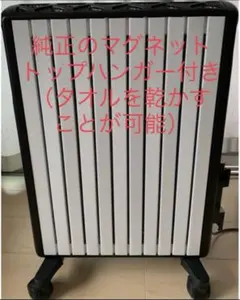 純正のマグネット
トップハンガー付き
（タオルを乾かす
ことが可能）